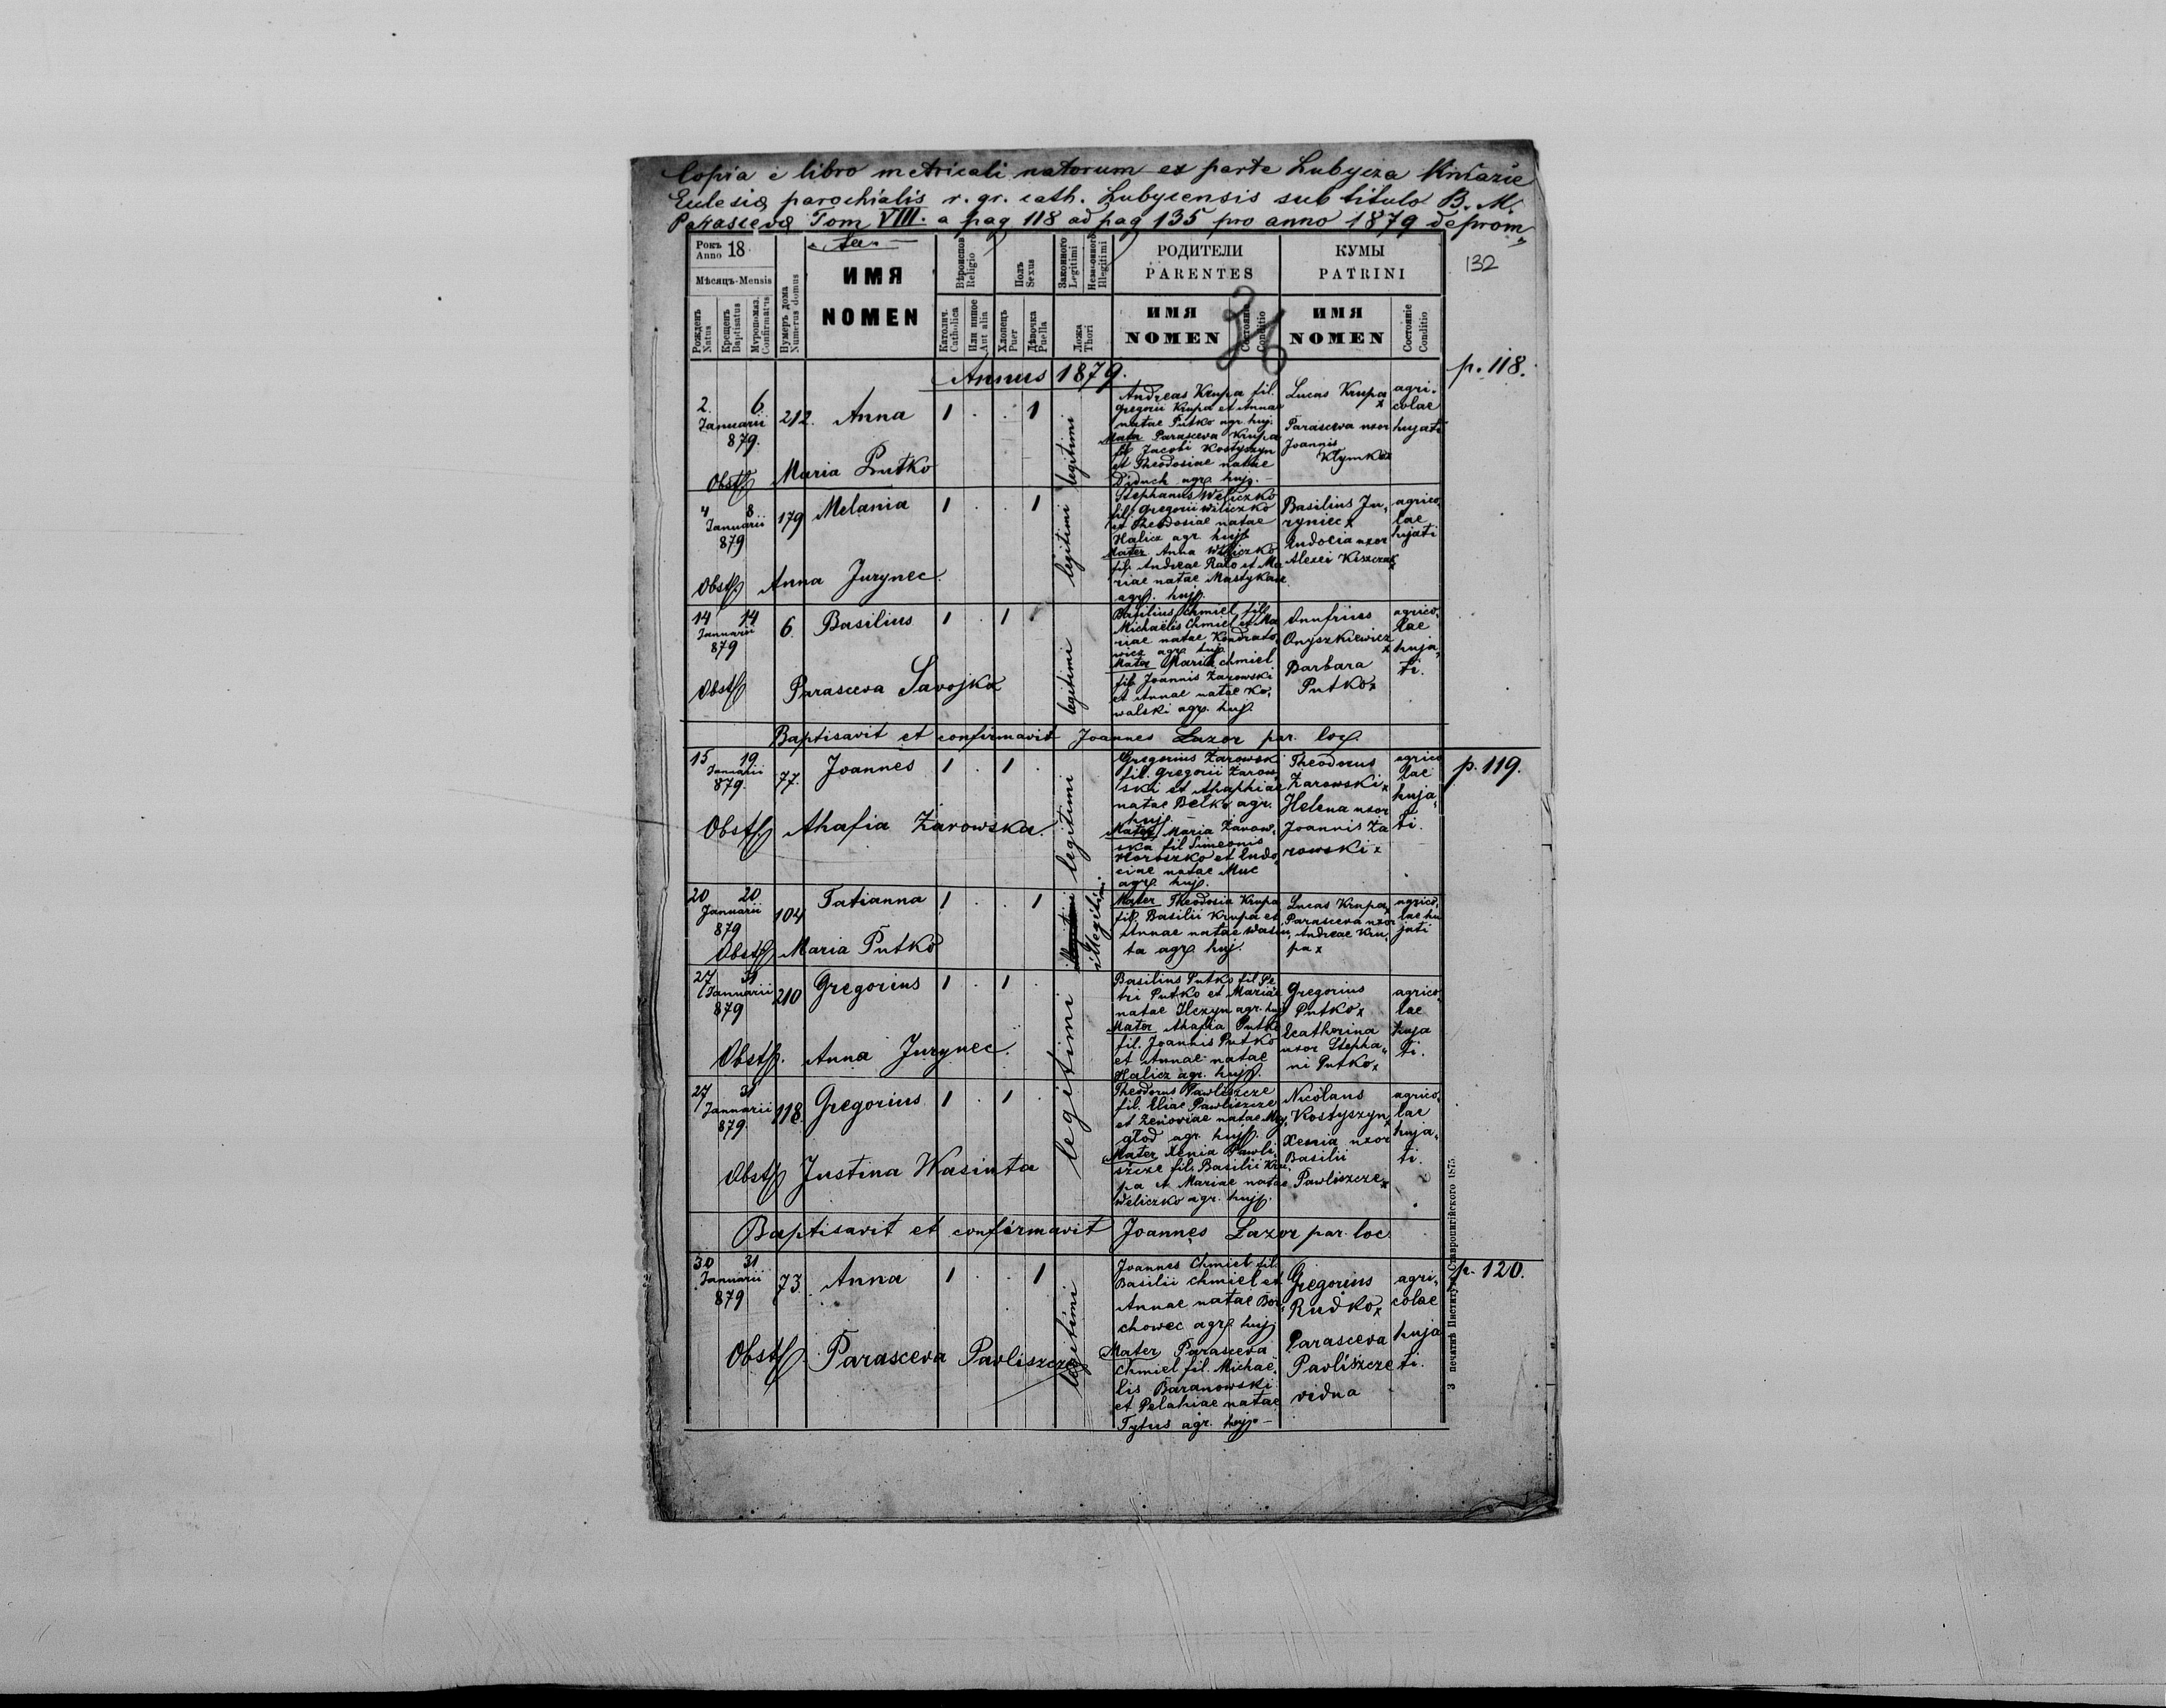 Copia e libro metricali natorum ex parte Lubycza Kniazie
Eclesiæ parochialis r. gr. cath. Lubycensis sub titulo B. M.
Parascevæ Tom VIII. a pag 118 ad pag 135 pro anno 1879 deprom„
ta
132
Рокъ Anno 18
Мѣсяцъ-Mensis
Рожденъ Natus
Крещенъ Baptisatus
Мѵропомаз. Confirmatus
Нумеръ дома Numerus domus
ИМЯ
NOMEN
Вѣроиспов Religio
Католич. Catholica
Или иное Aut alia
Полъ Sexus
Хлопецъ Puer
Дѣвочка Puella
Законного Legitimi
Незаконного Illegitimi
Ложа Thori
РОДИТЕЛИ
PARENTES
ИМЯ
NOMEN
Состояніе Conditio
КУМЫ
PATRINI
ИМЯ
NOMEN
Состояніе Conditio
Annus 1879.
p. 118.
2. 6.
Januarii
879.
212.
Anna
1 . . 1
legitimi
Andreas Krupa fil.
Gregorii Krupa et Annae
natae Putko agr. huj.
Mater Parasceva Krupa
fil. Jacobi Kostyszyn
et Theodosiae natae
Diduch agr. huj. –
Lucas Krupa x
Parasceva uxor
Joannis
Klymko x
agri-
colae
hujati
Obst. Maria Putko
4 8
Januarii
879
179
Melania
1 . . 1
legitimi
Stephanus Weliczko
fil. Gregorii Wiliczko
et Theodosiae natae
Halicz agr. huj.
Mater Anna Weliczko
fil. Andreae Rato et Ma
riae natae Mastykasz
agr. huj.
Basilius Ju„
ryniec x
Eudocia uxor
Alexei Kiszczak x
agrico„
lae
hujati
Obst. Anna Jurynec
14 14
Januarii
879
6
Basilius
1 . 1 .
legitimi
Basilius Chmiel fil.
Michaelis Chmiel et Ma
riae natae Kondrato„
wicz agr. huj.
Mater Maria Chmiel
fil. Joannis Żarowski
et Annae natae Ko„
walski agr. huj.
Onufrius
Onyszkiewicz x
Barbara
Putko x
agrico„
lae
huja„
ti.
Obst. Parasceva Savojka
Baptisavit et confirmavit Joannes Lazor par. loc.
p. 119.
15 19
Januarii
879.
77.
Joannes
1 . 1 .
legitimi
Gregorius Żarowsk
fil. Gregorii Żarow„
ski et Ahaphiae
natae Belko agr.
huj. –
Mater Maria Żarow„
ska fil Simeonis
Horoszko et Eudo„
ciae natae Muc
agr. huj.
Theodorus
Żarowski x
Helena uxor
Joannis Ża
rowski x
agrico
lae
huja„
ti.
Obst. Ahafia Żarowska.
20 20
Januarii
879
104
Tatianna
1 . . 1
illegitimi
Mater Theodosia Krupa
fil. Basilii Krupa et
Annae natae Wasiu„
ta agr. huj.
Lucas Krupa x
Parasceva uxor
Andreae Kru„
pa x
agrico„
lae hu
jati
Obst. Maria Putko
27 31
Januarii
879
210
Gregorius
1 . 1 .
legitimi
Basilius Putko fil Pe
tri Putko et Mariae
natae Ilczyn agr. huj
Mater Ahafia Putko
fil. Joannis Putko
et Annae natae
Halicz agr. huj.
Gregorius
Putko x
Ecatherina
uxor Stepha„
ni Putko x
agrico„
lae
huja
ti.
Obst. Anna Jurynec.
27 31
Januarii
879.
118.
Gregorius
1 . 1 .
Theodorus Pawliszcze
fil. Eliae Pawliszcze
et Zenoviae natae My„
głod agr. huj.
Mater Xenia Pawli„
szcze fil. Basilii Kru„
pa et Mariae natae
Weliczko agr. huj.
Nicolaus
Kostyszyn x
Xenia uxor
Basilii
Pawliszcze x
agrico„
lae
huja„
ti.
Obst. Justina Wasiuta
Baptisavit et confirmavit Joannes Lazor par. loc.
p. 120.
30 31
Januarii
879
73.
Anna
1 . . 1
legitimi
Joannes Chmiel fil.
Basilii Chmiel et
Annae natae Bor„
chowec agr. huj
Mater Parasceva
Chmiel fil. Michae„
lis Baranowski
et Pelahiae natae
Tytus agr. huj. –
Gregorius
Rudko x
Parasceva
Pavliszcze
vidua
agri„
colae
huja
ti.
Obst. Parasceva Pavliszcze
З печатнѣ Института Ставропигійского 1875.